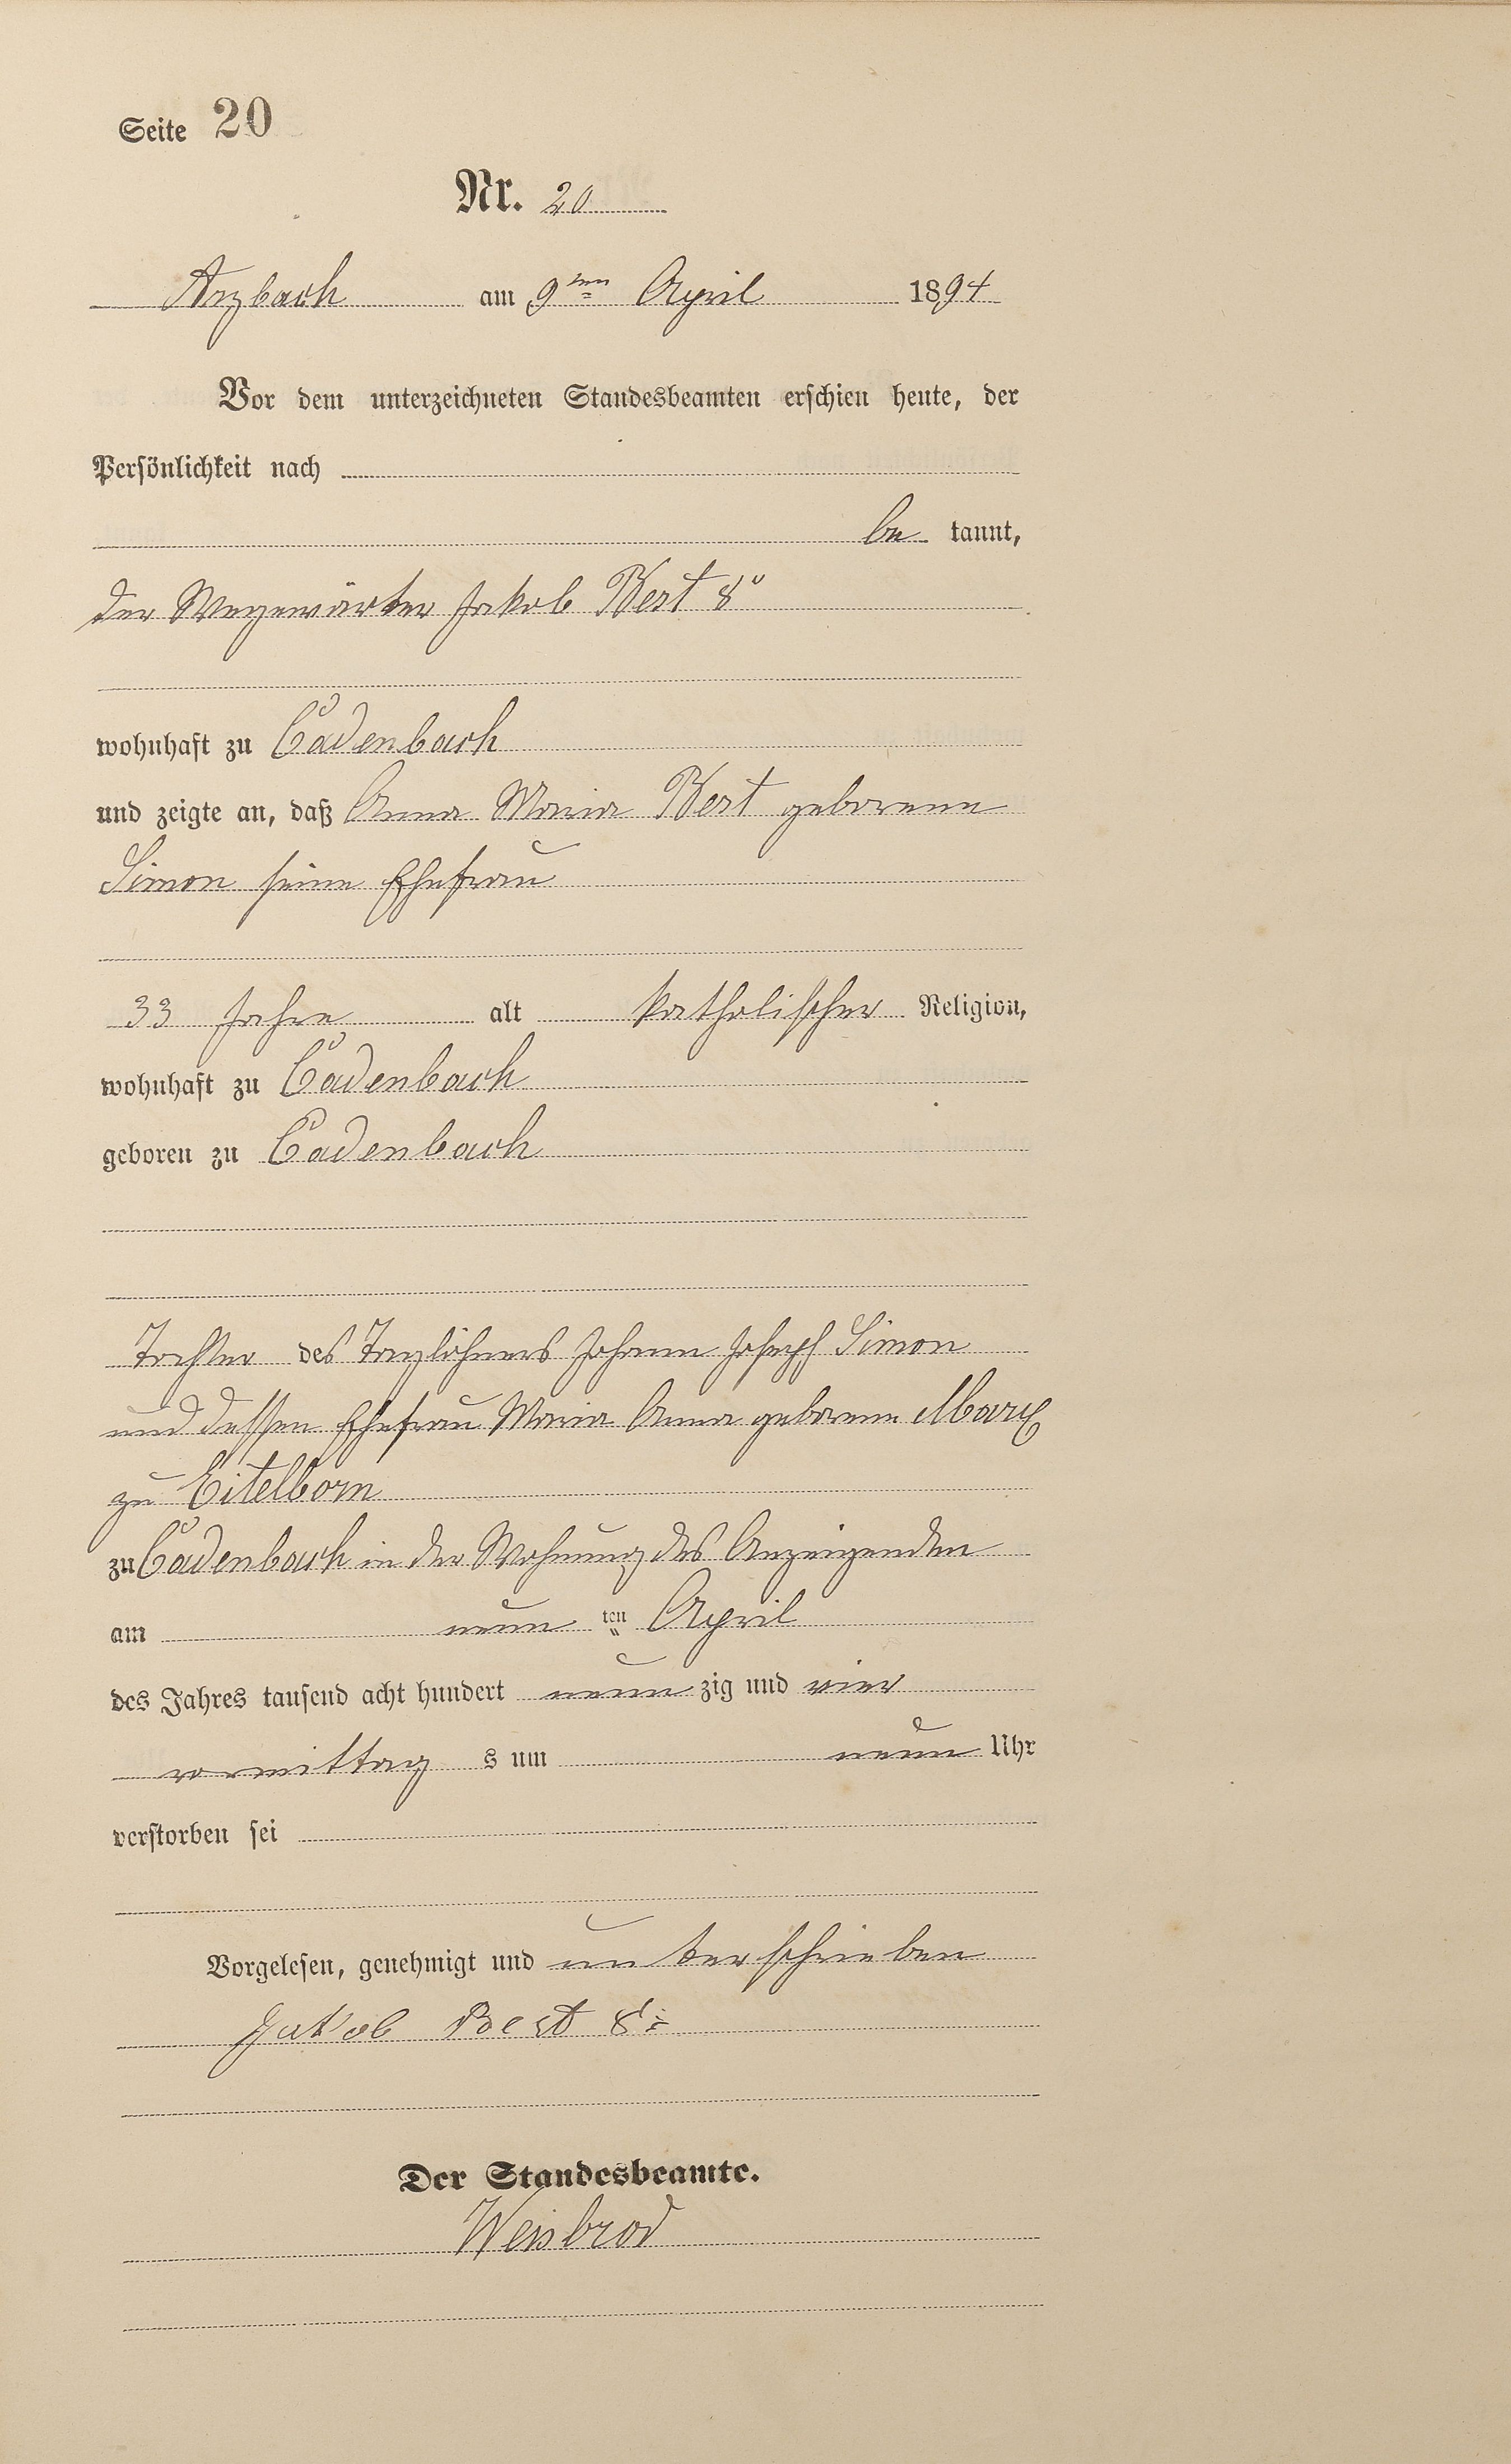 Seite 20
Nr. 20
Arzbach am 9ten April 1894
Vor dem unterzeichneten Standesbeamten erschien heute, der
Persönlichkeit nach
be kannt,
der Wegewärter Jakob Best 8r
wohnhaft zu Cadenbach
und zeigte an, daß Anna Maria Best geborene
Simon seine Ehefrau
33 Jahre alt katholischer Religion,
wohnhaft zu Cadenbach
geboren zu Cadenbach
Tochter des Taglöhners Johann Joseph Simon
und dessen Ehefrau Maria Anna geborene Marx
zu Eitelborn
zu Cadenbach in der Wohnung des Anzeigenden
am neun ten April
des Jahres tausend acht hundert neun zig und vier
vormittag s um neun Uhr
verstorben sei
Vorgelesen, genehmigt und unterschrieben
Jakob Best 8r
Der Standesbeamte.
Weisbrod